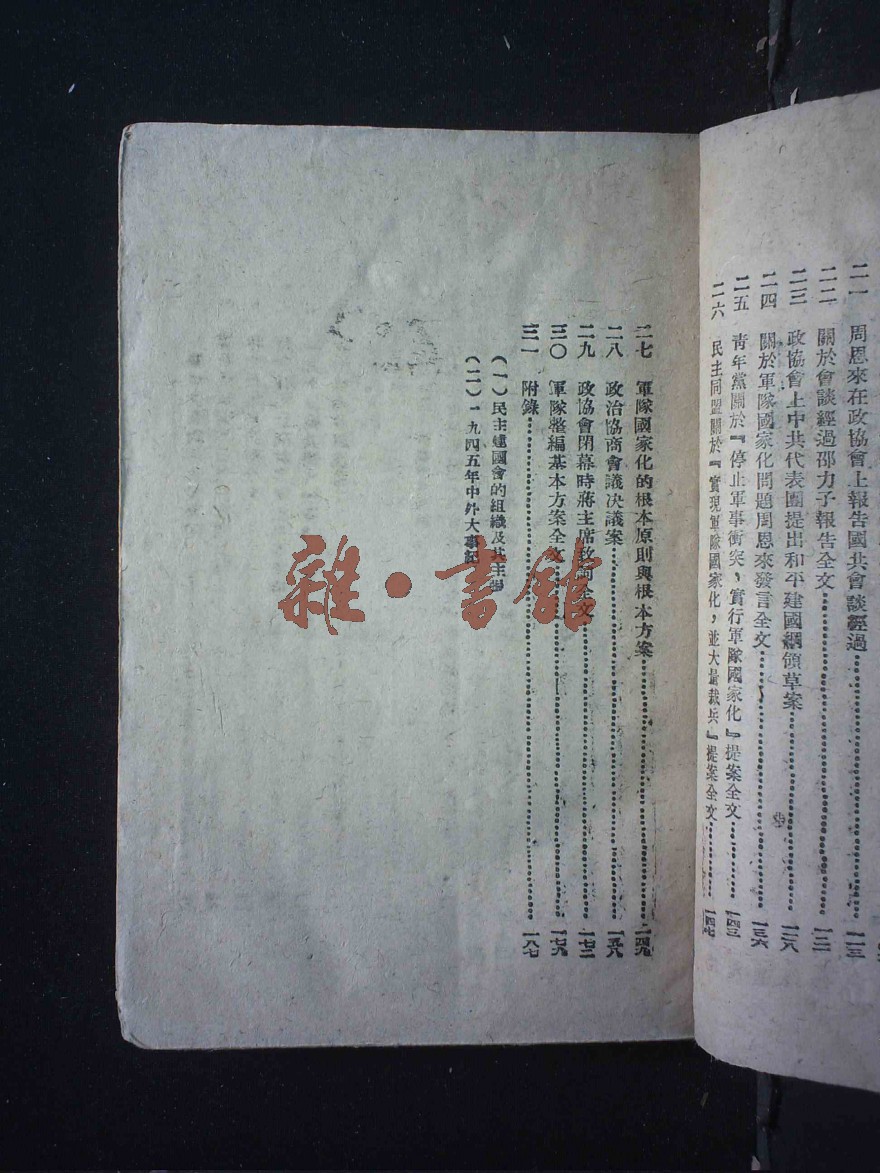 二一 周恩來在政協會上報告國共會談經過……一一三
二二 關於會談經過邵力子報告全文……一二一
二三 政協會上中共代表團提出和平建國綱領草案……一二八
二四 關於軍隊國家化問題周恩來發言全文……一三六
二五 青年黨關於『停止軍事衝突，實行軍隊國家化』提案全文……一四三
二六 民主同盟關於『實現軍隊國家化，並大量裁兵』提案全文……一四七
二七 軍隊國家化的根本原則與根本方案……一四九
二八 政治協商會議決議案……一五八
二九 政協會閉幕時蔣主席致詞全文……一七二
三〇 軍隊整編基本方案全文……一七九
三一 附錄……一八七
（一）民主建國會的組織及其主張
（二）一九四五年中外大事記
雜·書館